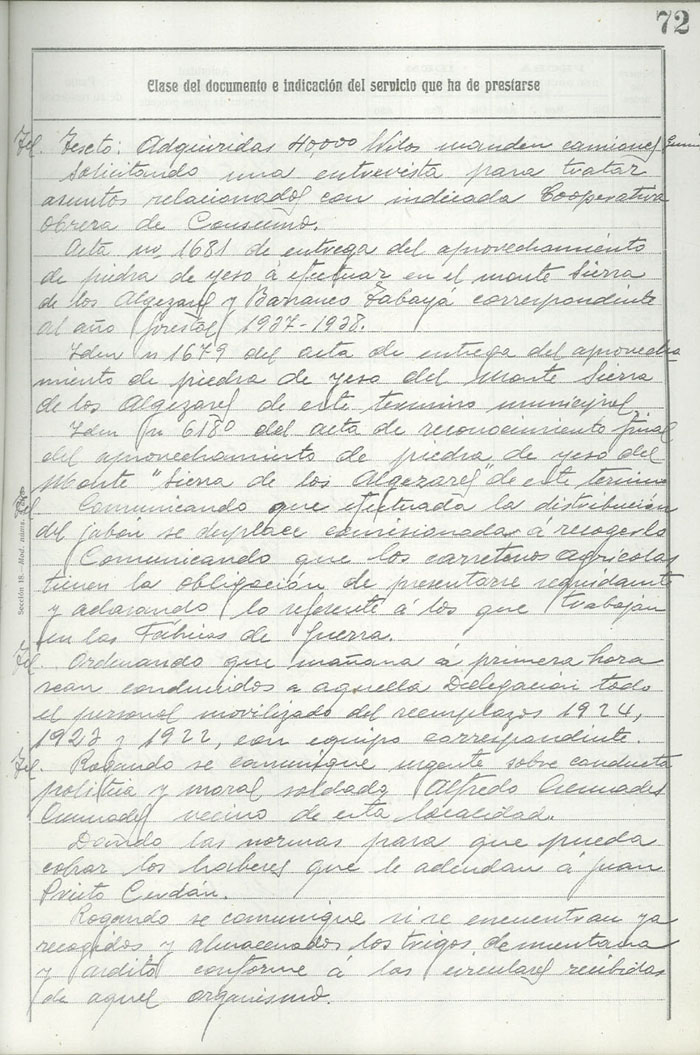 72
Clase del documento e indicación del servicio que ha de prestarse
Tel. Texto: Adquiridas 40,000 Kilos manden camiones
Solicitando una entrevista para tratar
asuntos relacionados con indicada Cooperativa
Obrera de Consumo.
Acta no. 1681 de entrega del aprovechamiento
de piedra de yeso á efectuar en el monte Sierra
de los Algezares y Barranco Tabayá correspondiente
al año forestal 1937-1938.
Idem n 1679 del acta de entrega del aprovecha
miento de piedra de yeso del Monte Sierra
de los Algezares de este termino municipal
Idem n 6180 del acta de reconocimiento final
del aprovechamiento de piedra de yeso del
Monte "Sierra de los Algezares" de este termino
Tel Comunicando que efectuada la distribución
del jabón se desplace comisionado á recogerlo
Comunicando que los carreteros agricolas
tienen la obligación de presentarse seguidamte
y aclarando lo referente á los que trabajan
en las Fábricas de Guerra.
Tel. Ordenando que mañana á primera hora
sean conducidos a aquella Delegación todo
el personal movilizado del reemplazos 1924,
1923 y 1922, con equipo correspondiente.
Tel. Rogando se comunique urgente sobre conducta
politica y moral soldado Alfredo
vecino de esta localidad.
Dando las normas para que pueda
cobrar los haberes que le adeudan á Juan
Prieto Cerdán.
Rogando se comunique si se encuentran ya
recogidos y almacenados los trigos de mentana
y ardito conforme á las circulares recibidas
de aquel organismo.
Sección 18.-Mod. núm.